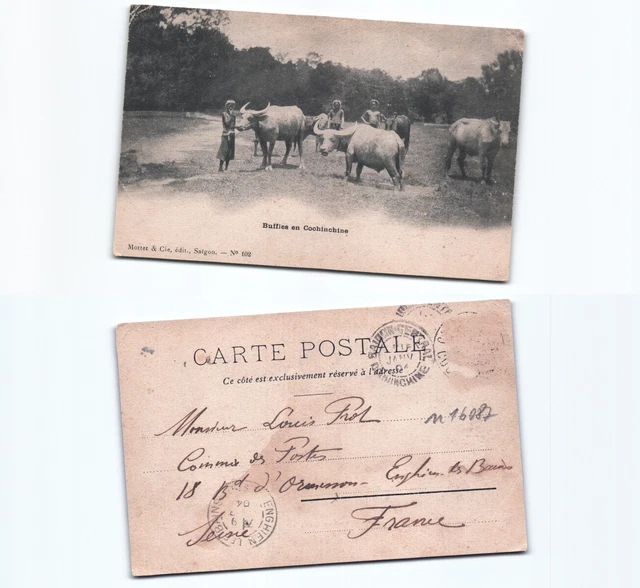 Buffles en Cochinchine
Mottet & Cie, édit., Saïgon. — Nº 102
CARTE POSTALE
Ce côté est exclusivement réservé à l'adresse
SAIGON-CENTRAL
JANV
COCHINCHINE
Monsieur Louis
n 16087
Commis des Postes
18 Bd d'Ormesson - Enghien les Bains
ENGHIEN LES BAINS
04
Seine
France